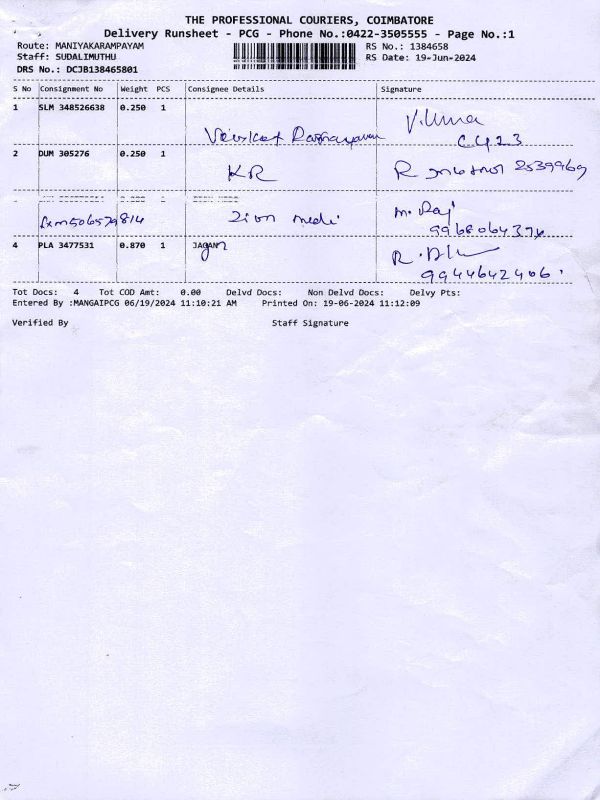 THE PROFESSIONAL COURIERS, COIMBATORE
Delivery Runsheet - PCG - Phone No.:0422-3505555 - Page No.:1
Route: MANIYAKARAMPAYAM RS No.: 1384658
Staff: SUDALIMUTHU RS Date: 19-Jun-2024
DRS No.: DCJB138465801
S No Consignment No Weight PCS Consignee Details Signature
1 SLM 348526638 0.250 1 V.Uma
2 DUM 305276 0.250 1 KR R 2539969
Zion medi M. Raj
4 PLA 3477531 0.870 1 JAGAN R.
9944642406
Tot Docs: 4 Tot COD Amt: 0.00 Delvd Docs: Non Delvd Docs: Delvy Pts:
Entered By :MANGAIPCG 06/19/2024 11:10:21 AM Printed On: 19-06-2024 11:12:09
Verified By Staff Signature